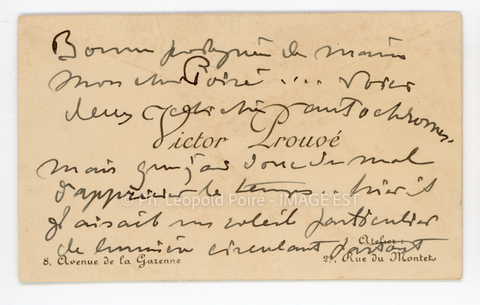 Bonne poignée de main
mon cher Poiré ... Voici
deux autochromes.
Victor Prouvé
mais que j'ai donc du mal
d'apprécier le temps .. hier il
faisait un soleil particulier
de lumière circulant partout
Atelier:
8, Avenue de la Garenne
27, Rue du Montet
© Ph. Léopold Poiré - IMAGE EST